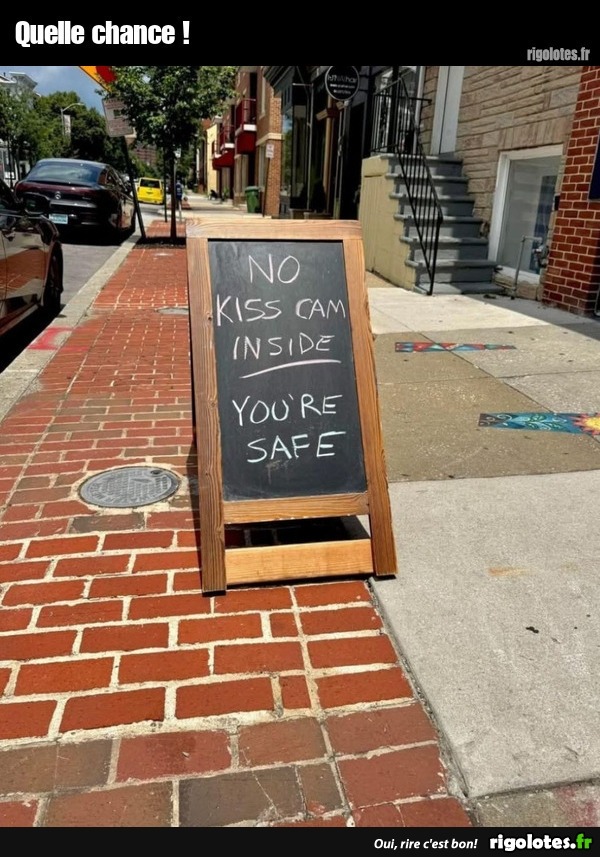 Quelle chance !
rigolotes.fr
NO
KISS CAM
INSIDE
YOU'RE
SAFE
Oui, rire c'est bon! rigolotes.fr